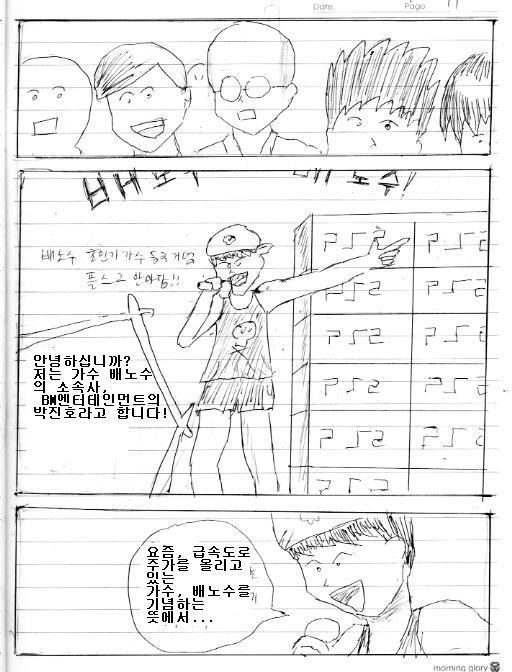 Date.
Page.
배노수
배노수!
배노수
플스2 한마당!!
안녕하십니까?
저는 가수 배노수
의 소속사,
BM엔터테인먼트의
박진호라고 합니다!
요즘, 급속도로
주가를 올리고
있는
가수, 배노수를
기념하는
뜻에서...
morning glory